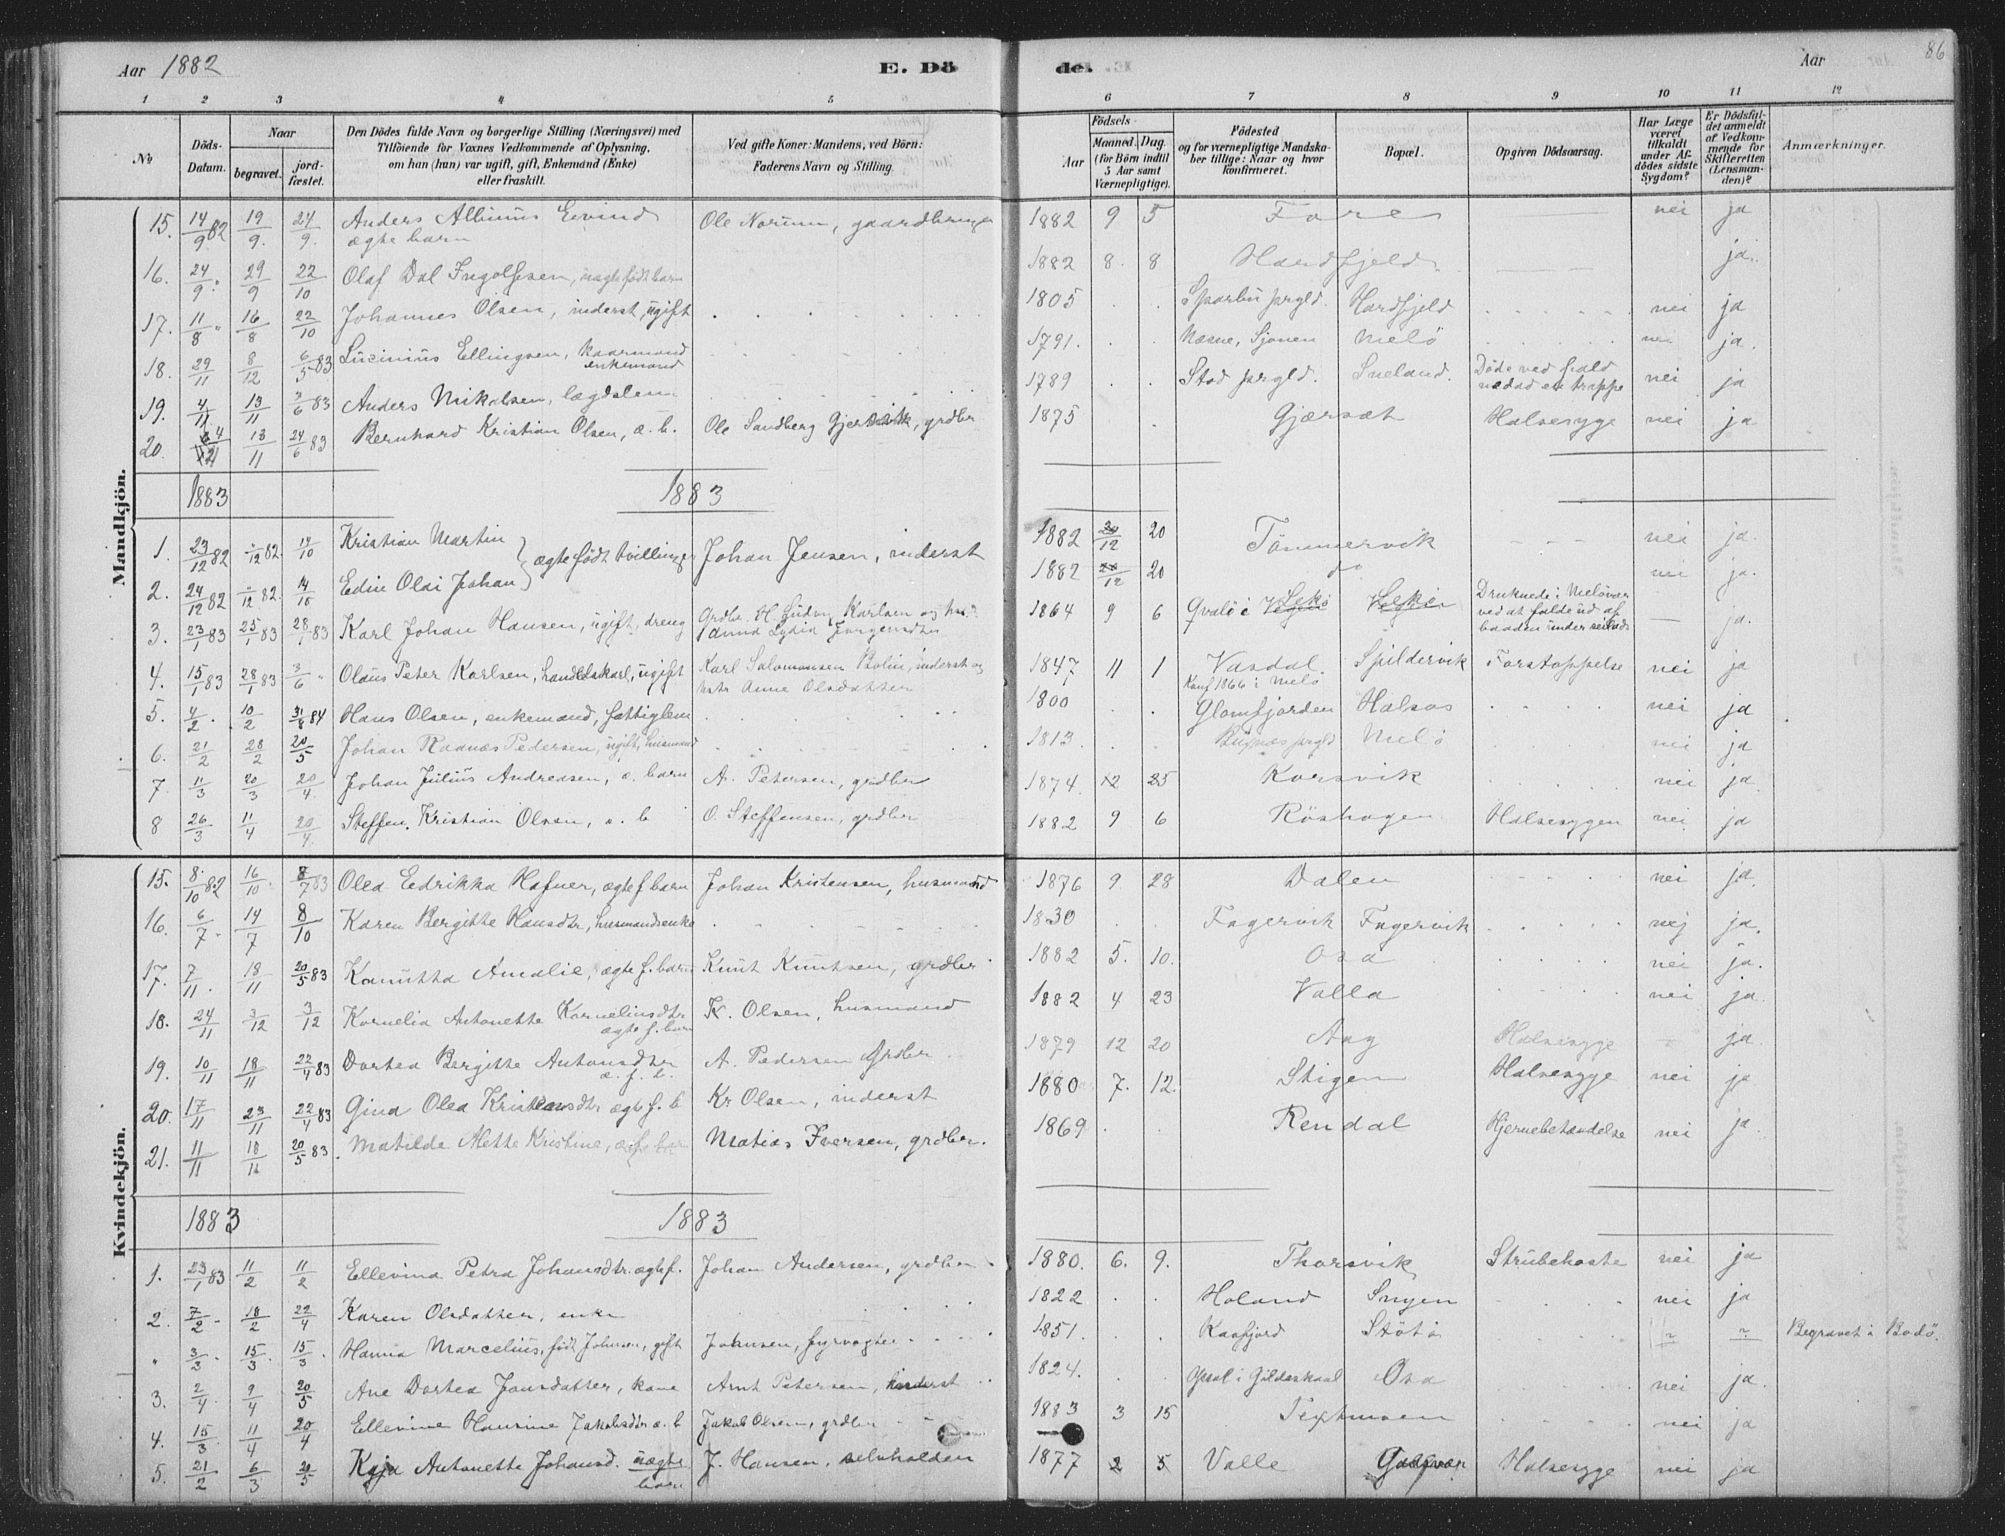 Aar 1882 E. Dö de. Aar 86
1 2 3 4 5 6 7 8 9 10 11 12
No
Döds-Datum.
Naar
begravet.
jord-fæstet.
Den Dödes fulde Navn og borgerlige Stilling (Næringsvei) med
Tilföiende for Voxnes Vedkommende af Oplysning,
om han (hun) var ugift, gift, Enkemand (Enke)
eller fraskilt.
Ved gifte Koner: Mandens, ved Börn:
Faderens Navn og Stilling.
Aar
Födsels-
Maaned. Dag.
(for Börn indtil
5 Aar samt
Værnepligtige).
Födested
og for værnepligtige Mandska-
ber tillige: Naar og hvor
konfirmeret.
Bopæl.
Opgiven Dödsaarsag.
Har Læge
været
tilkaldt
under Af-
dödes sidste
Sygdom?
Er Dödsfal-
det anmeldt
af Vedkom-
mende for
Skifteretten
(Lensman-
den)?
Anmærkninger.
Mandkjön.
15. 14/9 82 19/9. 24/9. Anders Albinus Eivind ægte barn Ole Norum, gaardbruger 1882 9 5 Fore nei ja
16. 24/9 " 29/9 22/10 Olaf Dal Ingolfsen, uægtefödt barn 1882 8. 8 Handfjeld ja.
17. 11/8 " 16/8 22/10 Johannes Olsen, inderst, ugift 1805 Sparbu prgld. Hardfjeld nei ja
18. 29/11 8/12 6/5 83 Lucinius Ellingsen, kaarmand enkemand 1791. Næsne, Sjonen Melö nei ja.
19. 4/11 13/11 3/6 83 Anders Nikolsen, lægdslem 1789 Stod prgld. Sneland. Döde ved fald nedad en trappe nei ja
20. 13/11 24/6 83 Bernhard Kristian Olsen, æ. b. Ole Sandberg Gjersvik, grdbr 1875 Gjærset Halsesyge nei ja
1883 1883
1. 23/12 82 "/12 82. 14/10 Kristian Martin } ægtefödt tvillinger Johan Jensen, inderst 1882 20/12 20 Tömmervik nei ja.
2. 24/12 82 "/12 82. 14/10 Edin Olai Johan 1882 20/12 20 do nei ja.
3. 23/1 83 25/1 83 28/1 83 Karl Johan Hansen, ugift, dreng Grdbr. H. Ludvig Karlsen og hu Anna Lydia Jörgensdtr 1864 9 6 Qvalö i Lekö Lekö Druknede i Melövær ved at falde ud af baaden under seilads — ja.
4. 15/1 83 28/1 83 3/6 " Olaus Peter Karlsen, handelskarl, ugift Karl Salomonsen Bolin, inderst og hstr Anne Olsdatter 1847 11 1 Vasdal Konf 1866 i Melö Spildervik Forstoppelse nei ja
5. 4/2. 10/2 31/8 84 Hans Olsen, enkemand, fattiglem 1800 Glomfjorden Halsos nei ja
6. 21/2 28/2 20/5 Johan Raanæs Pedersen, ugift, husmand 1813. prgld Melö nei ja
7. 11/3 20/3 20/4. Johan Julius Andreasen, æ. barn A. Petersen, grdbr 1874. 12 25 Korsvik nei ja.
8 26/3 11/4 20/4. Steffen Kristian Olsen, æ. b O. Steffensen, grdbr 1882 9 6 Röshagen Halsesygen nei ja
Kvindekjön.
15. 8/10 82 16/10. 8/7 83 Olea Eedrikka Hafner, ægte f. barn Johan Kristensen, husmand 1876 9. 28 Dalen nei ja.
16. 6/7. 14/7 8/10 Karen Bergitte Hansdtr, husmandsenke 1830 Fagervik Fagervik nej ja.
17. 7/11. 18/11 20/5 83 Kanutta Amalie, ægte f. barn Knut Knutsen, grdbr 1882 5. 10. Osa nei ja.
18. 24/11 3/12 3/12 Kornelia Antonette Kornelinsdtr ægte f. barn K. Olsen, husmand 1882 4 23 Valla nei ja.
19. 10/11 18/11 22/4 83 Dortea Bergitte Antonsdtr æ. f. b. A. Pedersen Grdbr 1879 12 20 Aag Halsesyge ja.
20. 17/11 23/11 22/4 83 Gina Olea Kristensdtr ægte f. b Kr Olsen, inderst 1880 7. 12. Stigen Halsesyge nei ja
21. 11/11 18/11 20/5 83. Matilde Mette Kristine, ægte f. bar Matias Iversen, grdbr. 1869 Rendal Hjernebetændelse nei ja
1883 1883
1. 23/1 83 11/2 11/2 Ellevina Petra Johansdtr. ægte f. Johan Andersen, grdbr 1880. 6. 9. Thorsvik Strubehoste nei ja
2. 7/2. 18/2 22/4 Karen Olsdatter, enke 1822 Holand Snyen nei ja
" 3/3. 15/3. 15/3. Hanna Marcelius, födt Johnsen, gift Johnsen, fyrvogter 1851. Kaafjord Stöt " " Begravet i Bodö.
3. 2/4. 9/4 20/5 Ane Dortea Jonsdatter, kone Arnt Petersen, inderst 1824. i Gildeskaal Osa nei ja.
4. 15/3. 11/4 20/4 Ellevine Hansine Jakobsdtr æ. b Jakob Olsen, grdbr 1883 3 15 Texmoen nei ja
5. 21/2 6/3 20/5 Kaja Antonette Johansd. uægte barn J. Hansen, selvholden 1877 2 5 Valle Halsesyge nei ja